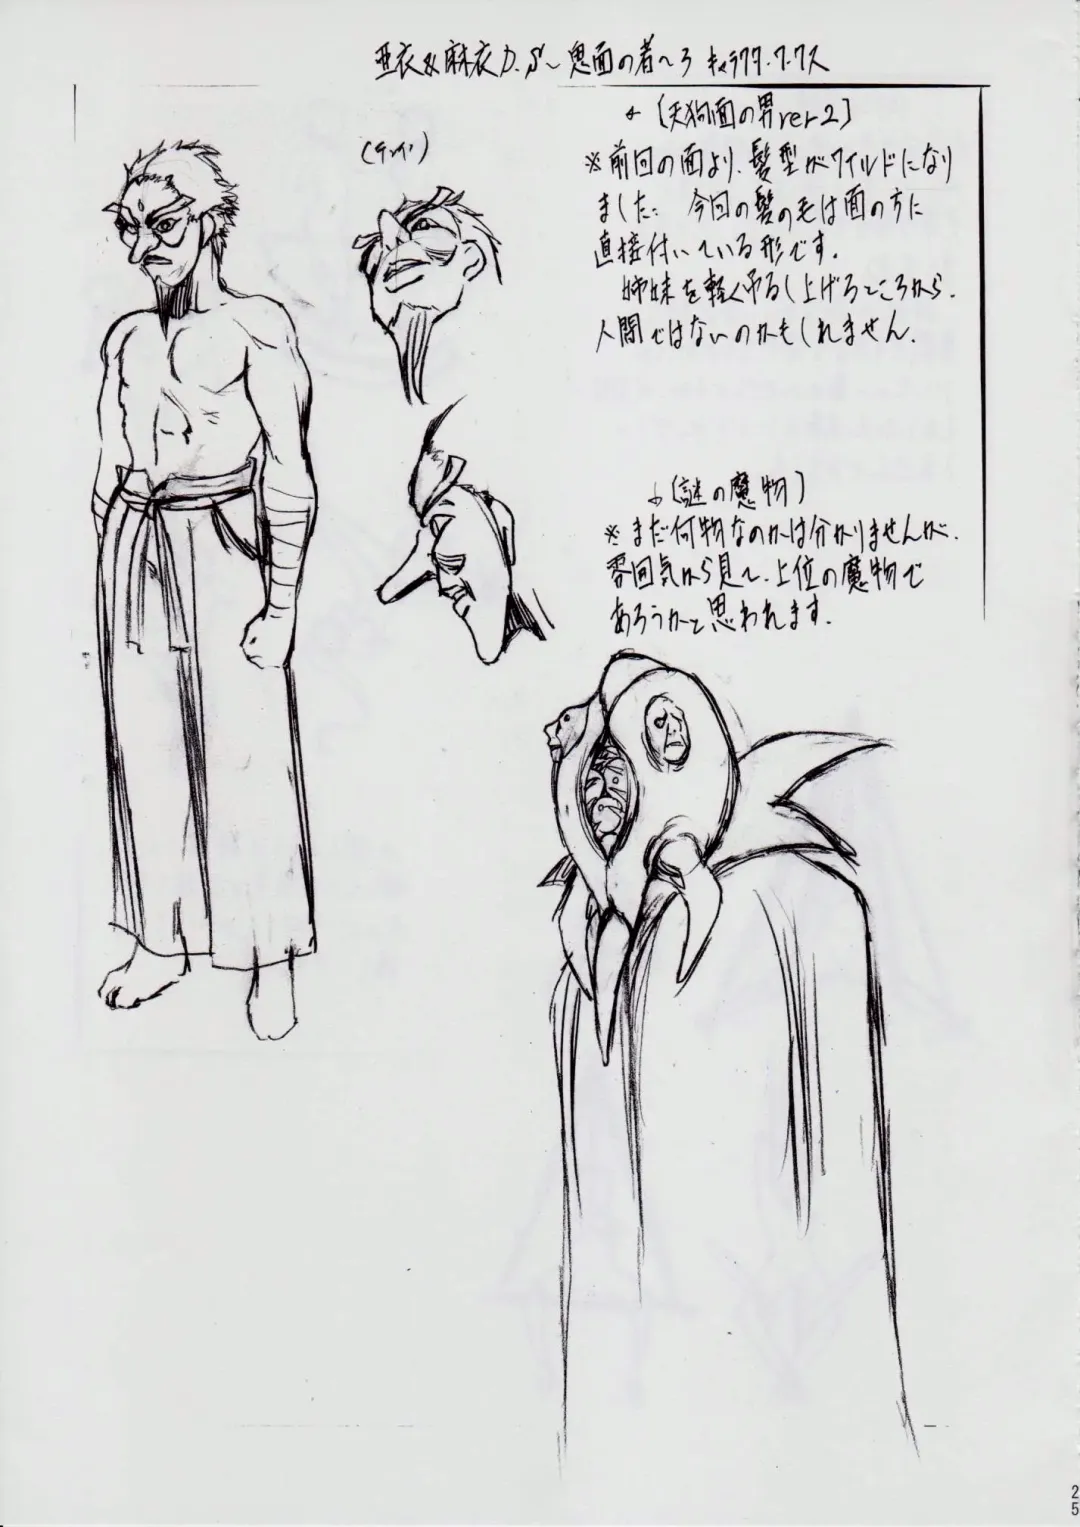 亜衣&麻衣D.S〜鬼面の者〜3 キャラクターラフ
(テング)
← [天狗面の男ver2]
※前回の面より、髪型がワイルドになり
ました。今回の髪の毛は面の方に
直接付いている形です。
姉妹を軽く吊るし上げるところから、
人間ではないのかもしれません。
↓ [謎の魔物]
※まだ何物なのかは分かりませんが、
雰囲気から見て、上位の魔物で
あろうかと思われます。
25